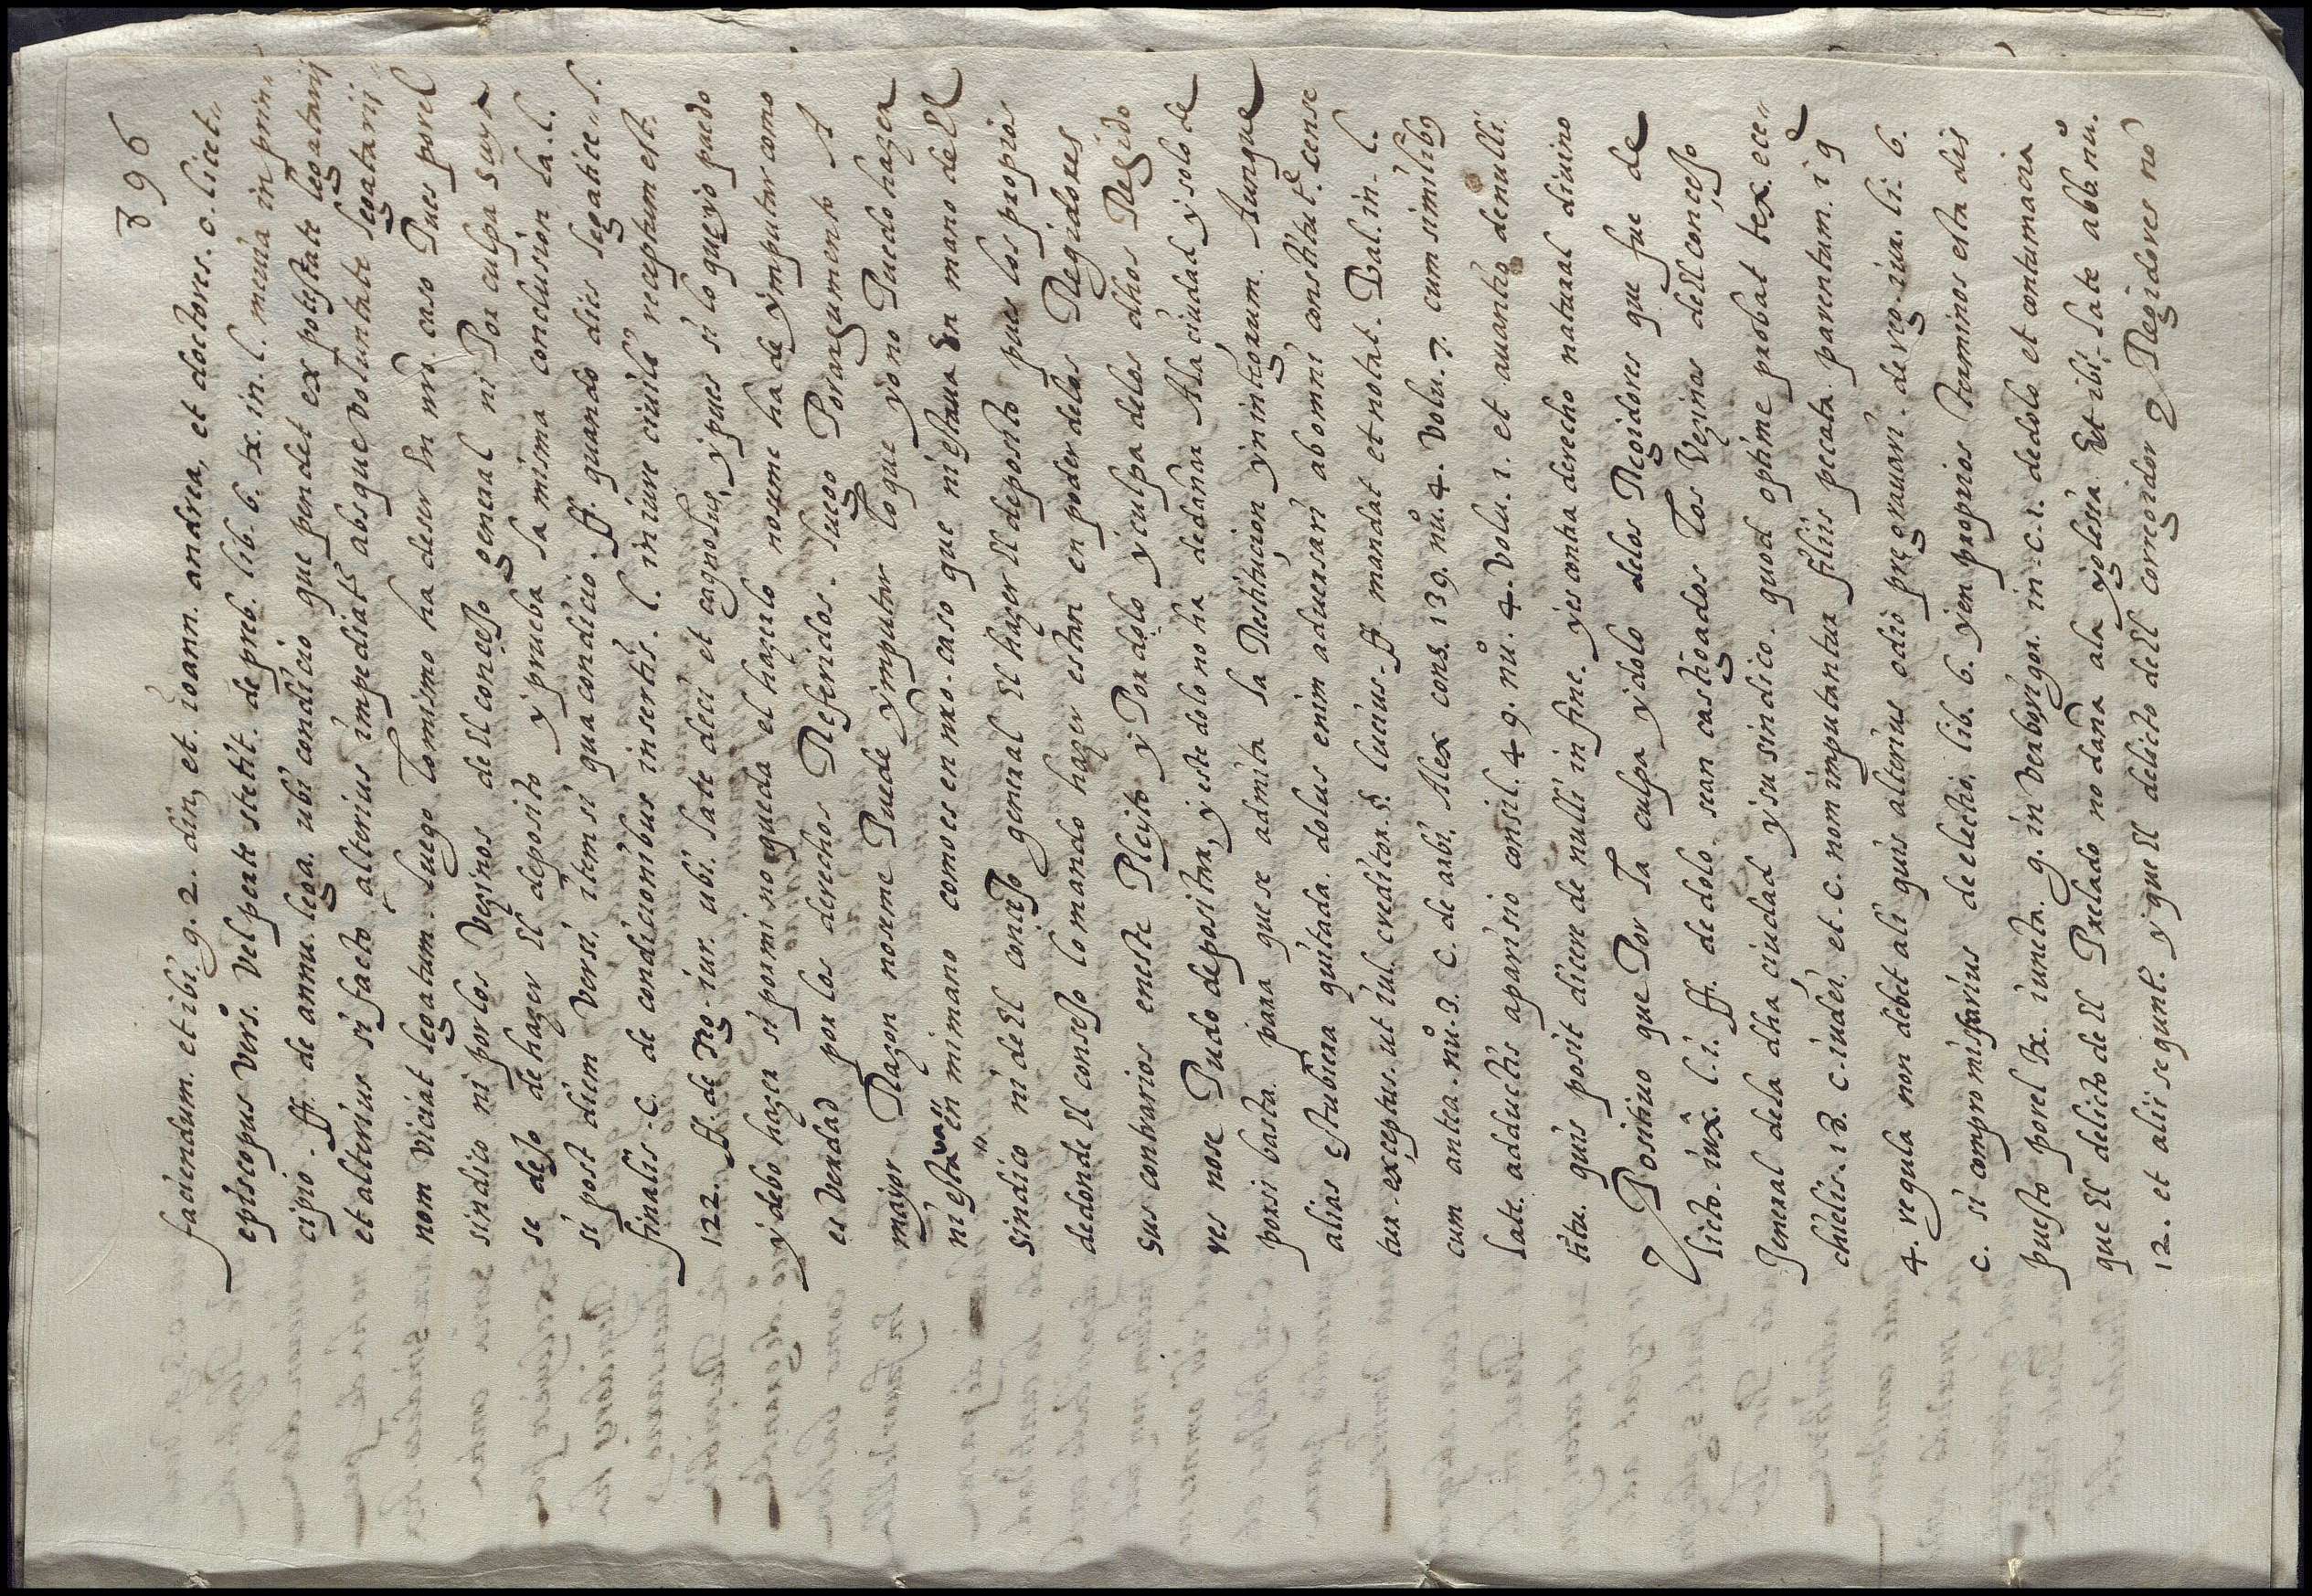 396
faciendum. et ibi. g. 2. din, et. ioann. andrea, et doctores. c. licet
episcopus vers. vel perte stetit. de preb. lib. 6. tx. in. l. meuia in prin
cipio. ff. de annu. lega. ubi condicio que pendet ex potestate legatarij
et alterius si facto alterius impediatr absque voluntate legatarij
nom viciat legatum. luego lo mismo ha deser En nro. caso Pues porel
sindico ni porlos Vezinos deEl conçejo general ni Por culpa suya
se dejo de hazer El deposito y prueba la misma conclusion la. l.
si post diem versi. item si qua condicio. ff. quando dies legati ce. l.
finalis. C. de condicionibus insertis. l. in iure ciuile receptum est.
122. ff. de reg. iur. ubi. late deci et cagnolus, y pues si lo que yo puedo
y debo hazer si por mi no queda el hazerlo noseme ha de ymputar como
es verdad por los derechos Referidos. luego Por argumento A
mayor Razon noseme Puede ymputar lo que yo no Puedo hazer
ni estaua en mi mano como es en nro. caso que ni estaua En mano deEl
sindico ni deEl conçejo general El hazer El deposito pues los propios
dedonde El consejo lo mando hazer estan en poder delos Regidores
sus contrarios eneste Pleyto y Por dolo y culpa delos dhos Regido
res nose Pudo depositar, y este dolo no ha dedañar Ala ciudad y solo de
porsi basta para que se admita la Restitucion yn integrum. Aunque
alias estubiera quitada. dolus enim aduersarij ab omni constitut.e cense
tur exceptus. ut iul. creditor. §. lucius. ff. mandat et notat. Bal. in. l.
cum antea. nu. 3. C. de arbi. Alex cons. 139. nu. 4. Volu. 7. cum similibg
late. adductis aparisio consil. 49. nu. 4. Volu. 1. et auantio denulli.
titu. quis posit dicere de nulli in fine. y es contra derecho natural diuino
y Positiuo que Por la culpa y dolo delos Regidores que fue de
licto. iux. l. i. ff. de dolo. sean castigados los Vezinos delEl conçejo
Jeneral dela dha ciudad y su sindico. quod optime probat tex. ece
chielis. 18. c. iudei. et. c. nom imputantur filiis pecata parentum. i q
4. regula non debet ali quis alterius odio pregrauari. de reg. iur. li. 6.
c. si compromissarius de electio. lib. 6. y en propios terminos esta dis
puesto porel tx. iuncta. g. in verbo rigor. in. c. 1. de dolo et contumacia
que El delicto deEl Prelado no daña ala yglesia. Et ibi. late abb. nu.
12. et alii sequnt. y que El delicto deEl corregidor y Regidores no